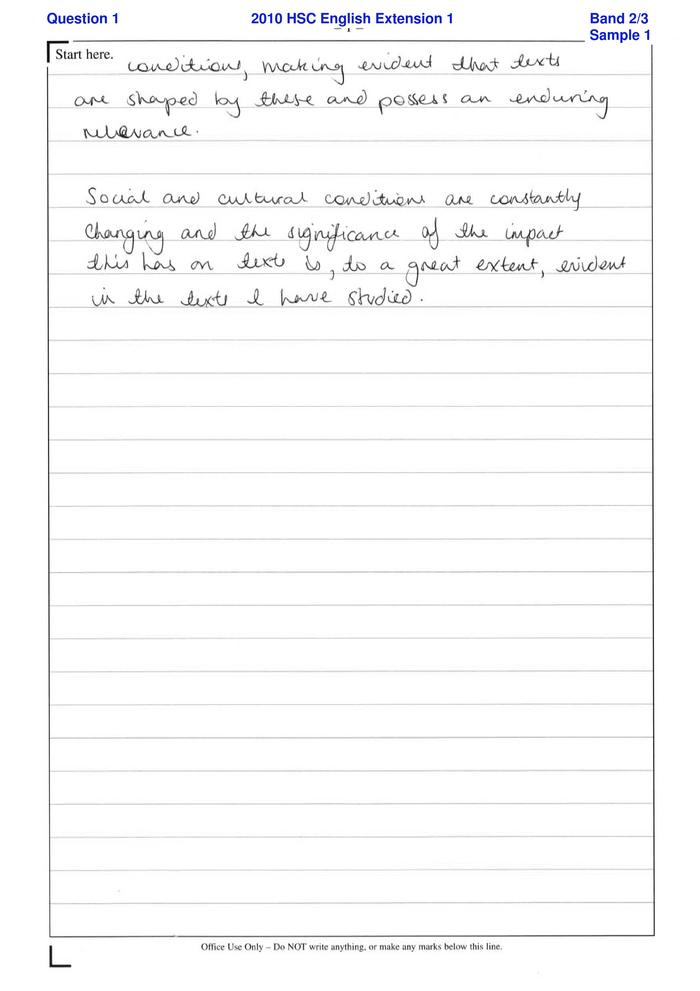 Question 1 2010 HSC English Extension 1 Band 2/3
Sample 1
Start here.
conditions, making evident that texts
are shaped by these and possess an enduring
relevance.
Social and cultural conditions are constantly
Changing and the significance of the impact
this has on texts is, to a great extent, evident
in the texts I have studied.
Office Use Only – Do NOT write anything, or make any marks below this line.